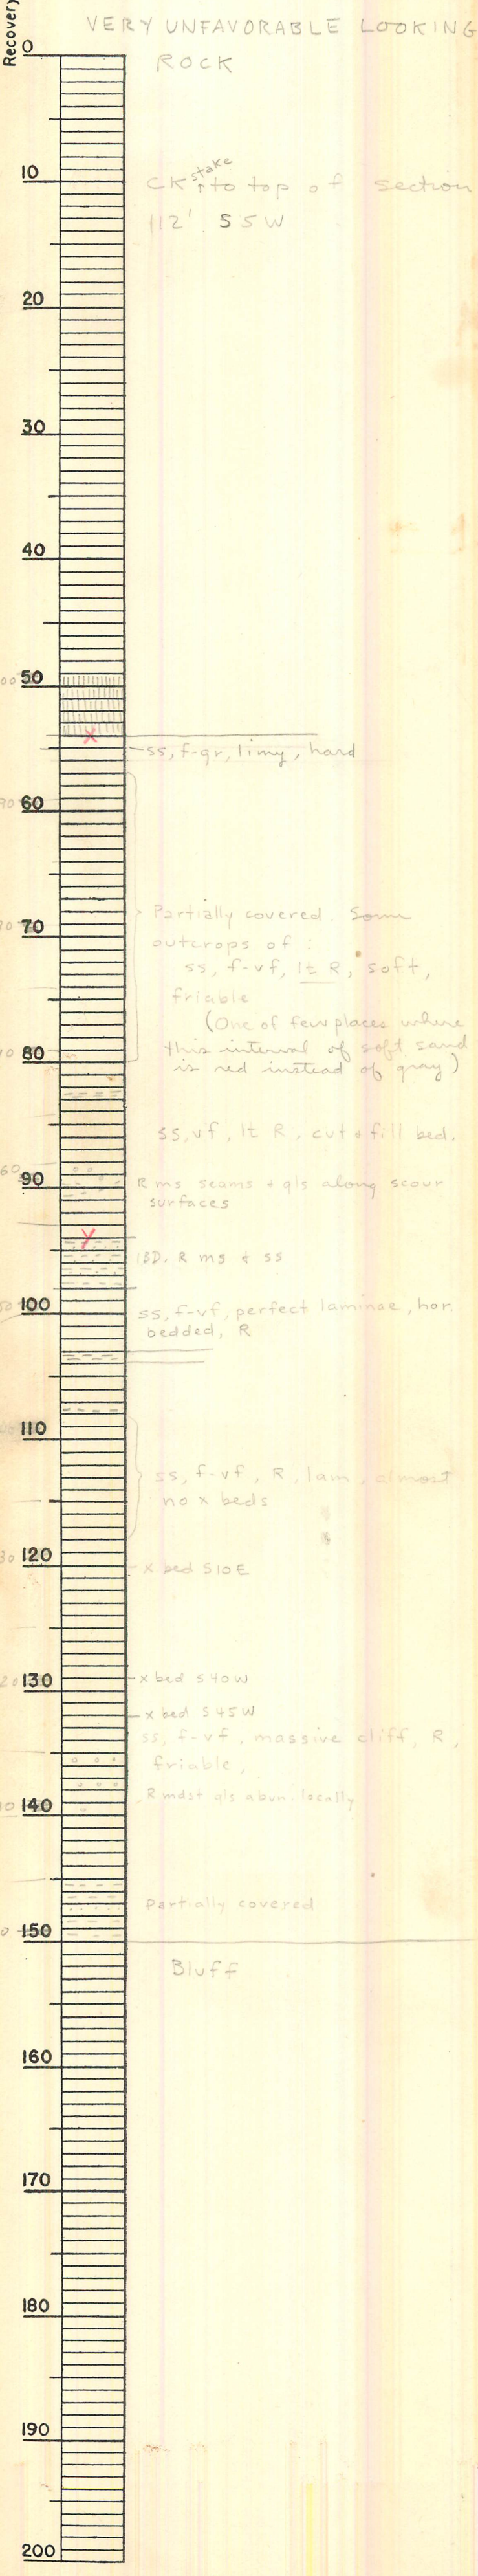 Recovery
VERY UNFAVORABLE LOOKING
ROCK
0
10
stake
CK ↑ to top of section
112' S5W
20
30
40
50
X
ss, f-gr, limy, hard
60
Partially covered. Some
70
outcrops of :
ss, f-vf, lt R, soft,
friable
(One of few places where
this interval of soft sand
80
is red instead of gray)
ss, vf, lt R, cut & fill bed.
90
R ms seams & gls along scour
surfaces
Y
BD. R ms & ss
100
ss, f-vf, perfect laminae, hor.
bedded, R
110
ss, f-vf, R, lam, almost
no x beds
120
x bed S10E
130
x bed S40W
x bed S45W
ss, f-vf, massive cliff, R,
friable,
R mdst gls abun. locally
140
Partially covered
150
Bluff
160
170
180
190
200